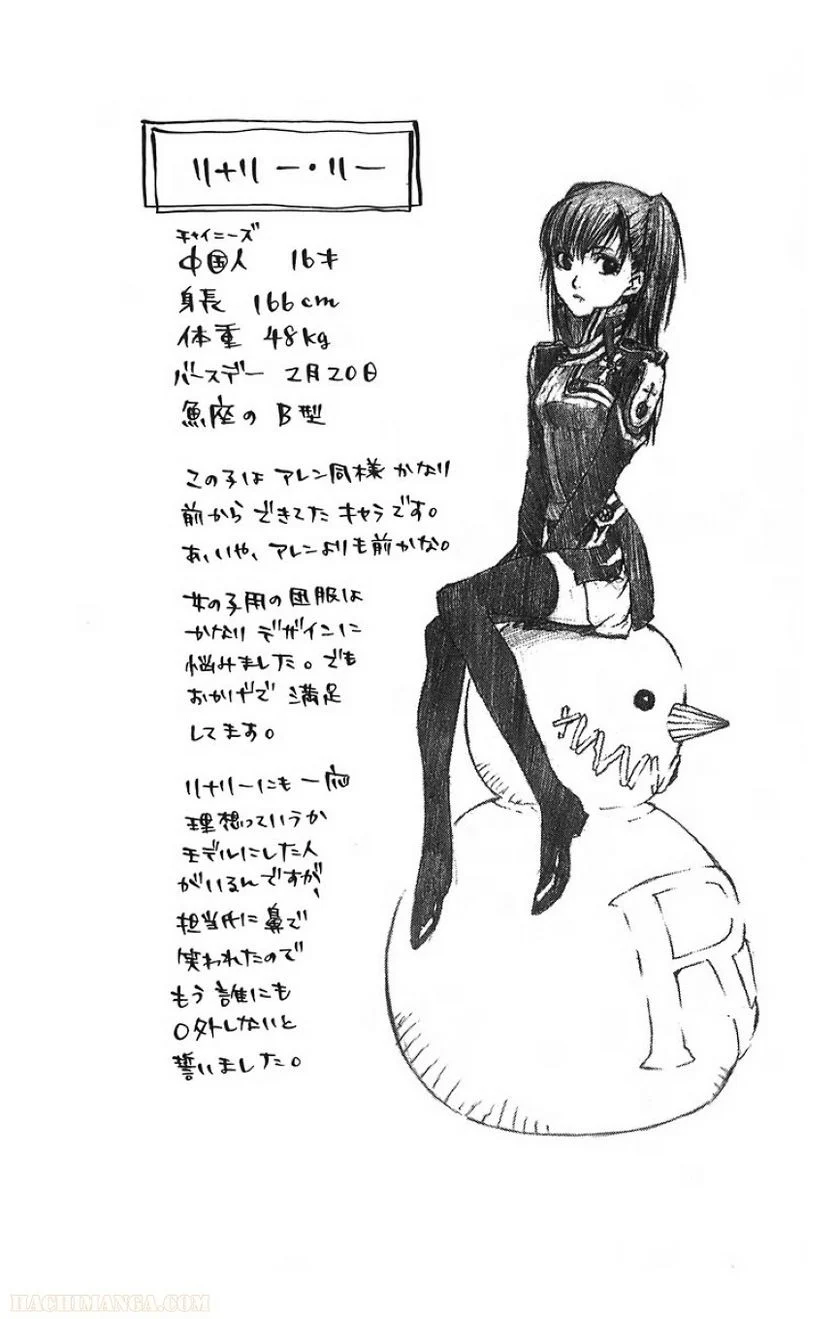 リナリー・リー
チャイニーズ
中国人 16才
身長 166cm
体重 48kg
バースデー 2月20日
魚座の B型
この子は アレン同様 かなり
前から できてた キャラです。
あ、いや、アレンよりも前かな。
女の子用の団服は
かなり デザインに
悩みました。でも
おかげで 満足
してます。
リナリーにも 一応
理想っていうか
モデルにした人
がいるんですが、
担当氏に鼻で
笑われたので
もう 誰にも
口外しないと
誓いました。
R
HACHIMANGA.COM